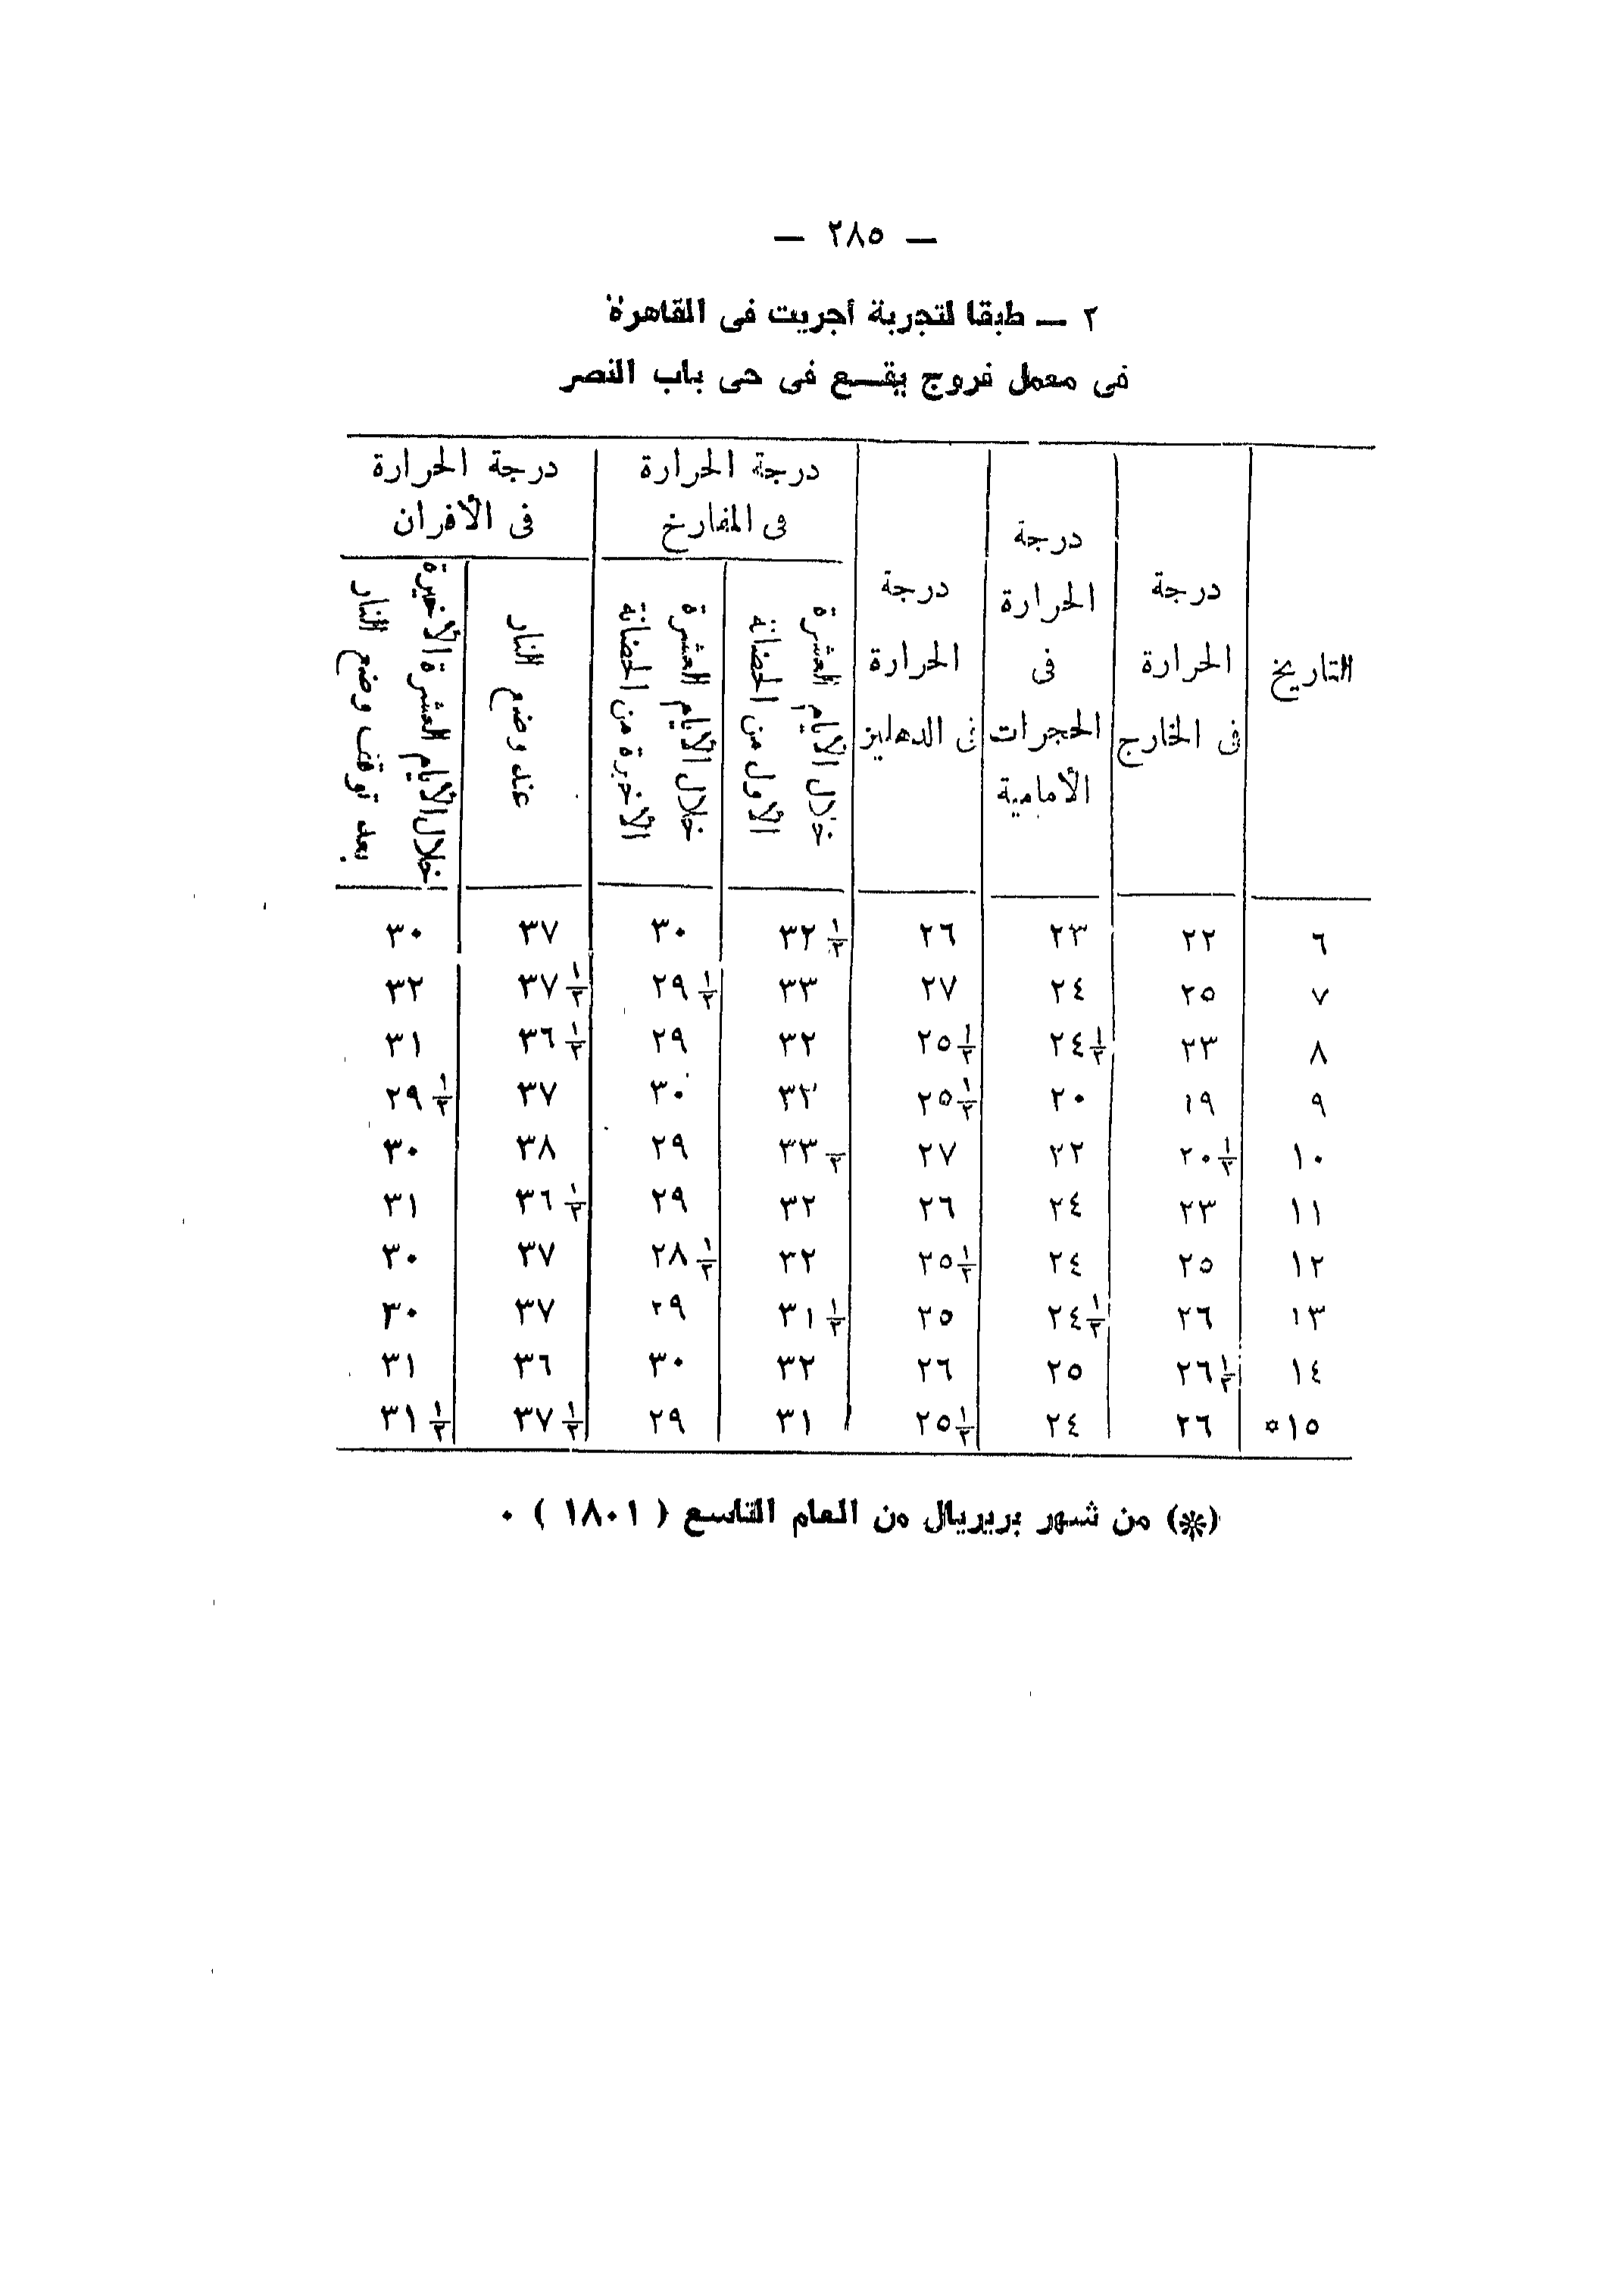 — ٢٨٥ —
٢ — طبقا لتجربة أجريت فى القاهرة
فى معمل فروج يقـــع فى حى باب النصر
التاريخ
درجة
الحرارة
فى الخارج
درجة
الحرارة
فى
الحجرات
الأمامية
درجة
الحرارة
فى الدهليز
درجة الحرارة
فى المفارخ
خلال الأيام العشرة
الأولى من الحضانة
خلال الأيام العشرة
الأخيرة من الحضانة
درجة الحرارة
فى الأفران
عند وضع النار
خلال الأيام العشرة الأخيرة
بعد توقف وضع النار
٦ ٢٢ ٢٣ ٢٦ ٣٢ ١/٢ ٣٠ ٣٧ ٣٠
٧ ٢٥ ٢٤ ٢٧ ٣٣ ٢٩ ١/٢ ٣٧ ١/٢ ٣٢
٨ ٢٣ ٢٤ ١/٢ ٢٥ ١/٢ ٣٢ ٢٩ ٣٦ ١/٢ ٣١
٩ ١٩ ٢٠ ٢٥ ١/٢ ٣٢ ٣٠ ٣٧ ٢٩ ١/٢
١٠ ٢٠ ١/٢ ٢٢ ٢٧ ٣٣ ١/٢ ٢٩ ٣٨ ٣٠
١١ ٢٣ ٢٤ ٢٦ ٣٢ ٢٩ ٣٦ ١/٢ ٣١
١٢ ٢٥ ٢٤ ٢٥ ١/٢ ٣٢ ٢٨ ١/٢ ٣٧ ٣٠
١٣ ٢٦ ٢٤ ١/٢ ٢٥ ٣١ ١/٢ ٢٩ ٣٧ ٣٠
١٤ ٢٦ ١/٢ ٢٥ ٢٦ ٣٢ ٣٠ ٣٦ ٣١
١٥* ٢٦ ٢٤ ٢٥ ١/٢ ٣١ ٢٩ ٣٧ ١/٢ ٣١ ١/٢
(*) من شهر بريريال من العام التاسع ( ١٨٠١ ) ٠